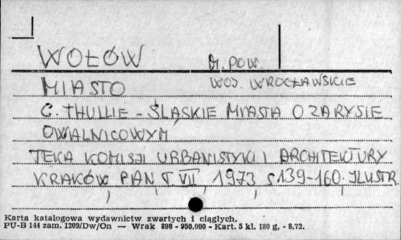 WOŁÓW D. POW.
MIASTO WOJ. WROCŁAWSKIE
C. THULLIE - ŚLĄSKIE MIASTA O ZARYSIE
OWALNICOWYM
TEKA KOMISJI URBANISTYKI I ARCHITEKTURY
KRAKÓW PAN T VII, 1973 S 139-160. ILUSTR
Karta katalogowa wydawnictw zwartych i ciągłych.
PU-B 144 zam. 1209/Dw/On — Wrak 898 - 950.000 - Kart. 5 kl. 180 g, - 8.72.